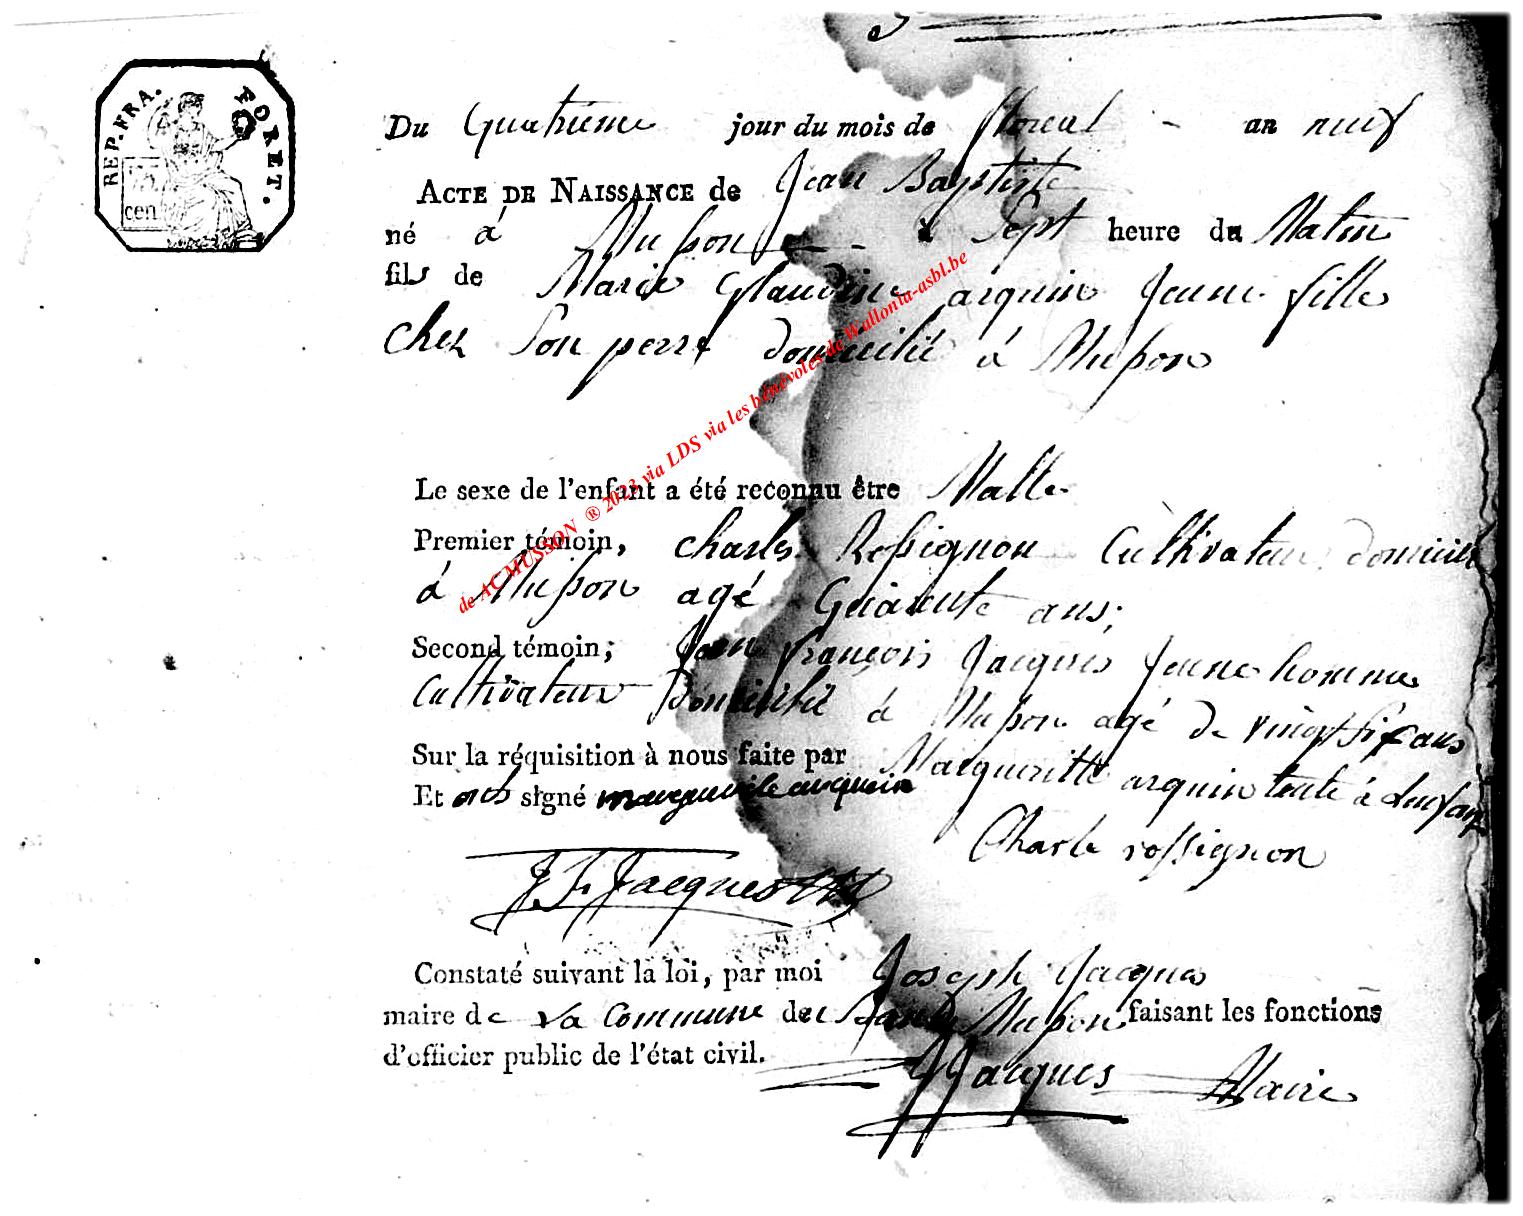 REP. FRA.
FORET.
cen
Du Quatrieme jour du mois de floreal - an neuf
ACTE DE NAISSANCE de Jean Baptiste
né à Musson à Sept heure du Matin
fils de Marie Glaudine arquin Jeune fille
chez Son perre domicilié à Musson
Le sexe de l'enfant a été reconnu être Malle
Premier témoin, charles Rossignon Cultivateur domicilié
à Musson agé Quarente ans;
Second témoin; Jean françois Jacques Jeune homme
Cultivateur Domicilié à Musson agé De vingt six ans
Sur la réquisition à nous faite par Margueritte arquin tente à l'enfant
Et onts signé marguerite arquein
Charle rossignon
J. F. Jacques
Constaté suivant la loi, par moi Joseph Jacques
maire de La Commune de Musson faisant les fonctions
d'officier public de l'état civil.
JJacques Maire
de AC MUSSON ® 2023 via LDS via les bénévoles de Wallonia-asbl.be